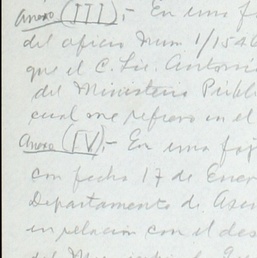 Anexo (III).- En una f
del oficio Núm 1/1546
que el C. Lic. Antoni
del Ministerio Públ
cual me refiero en el
Anexo (IV).- En una foj
con fecha 17 de Ener
Departamento de
en relación con el des
del